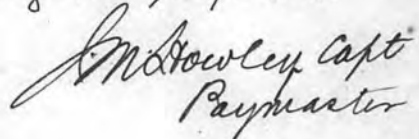 J. M. Howley Capt
Paymaster